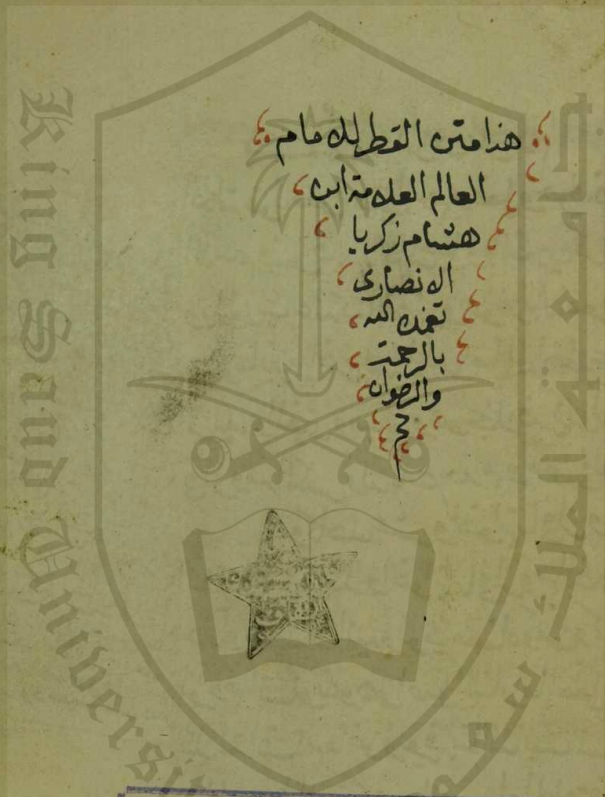 هذا متن القطر للامام
العالم العلامة ابن
هشام زكريا
الانصارى
تغمده الله
بالرحمة
والرضوان
م
King Saud University
جامعة الملك سعود